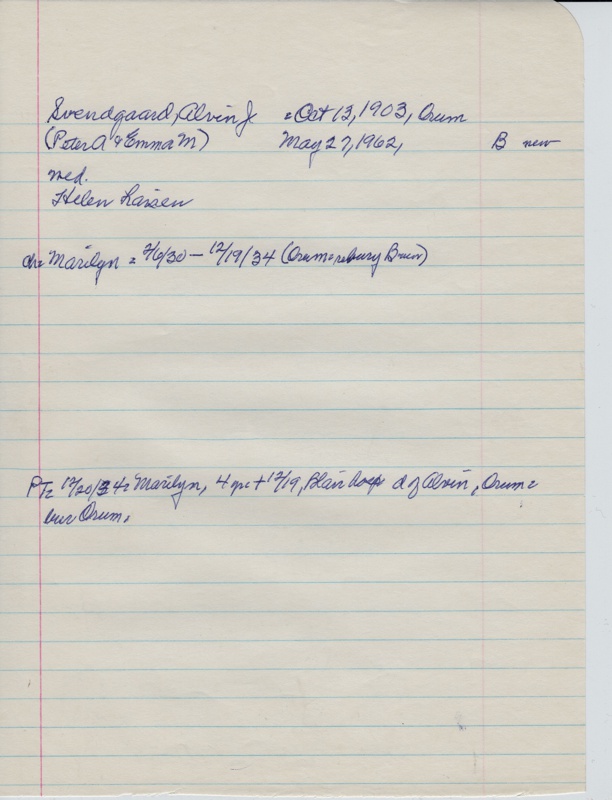 Svendgaard, Alvin J = Oct 13, 1903, Orum
(Peter A & Emma M) May 27, 1962, B new
med.
Helen Larsen
ch= Marilyn = 2/6/30 – 12/19/34 (Orum = rebury B new)
PT= 12/20/34: Marilyn, 4 yrs + 12/19, Blair hosp d of Alvin, Orum =
bur Orum.